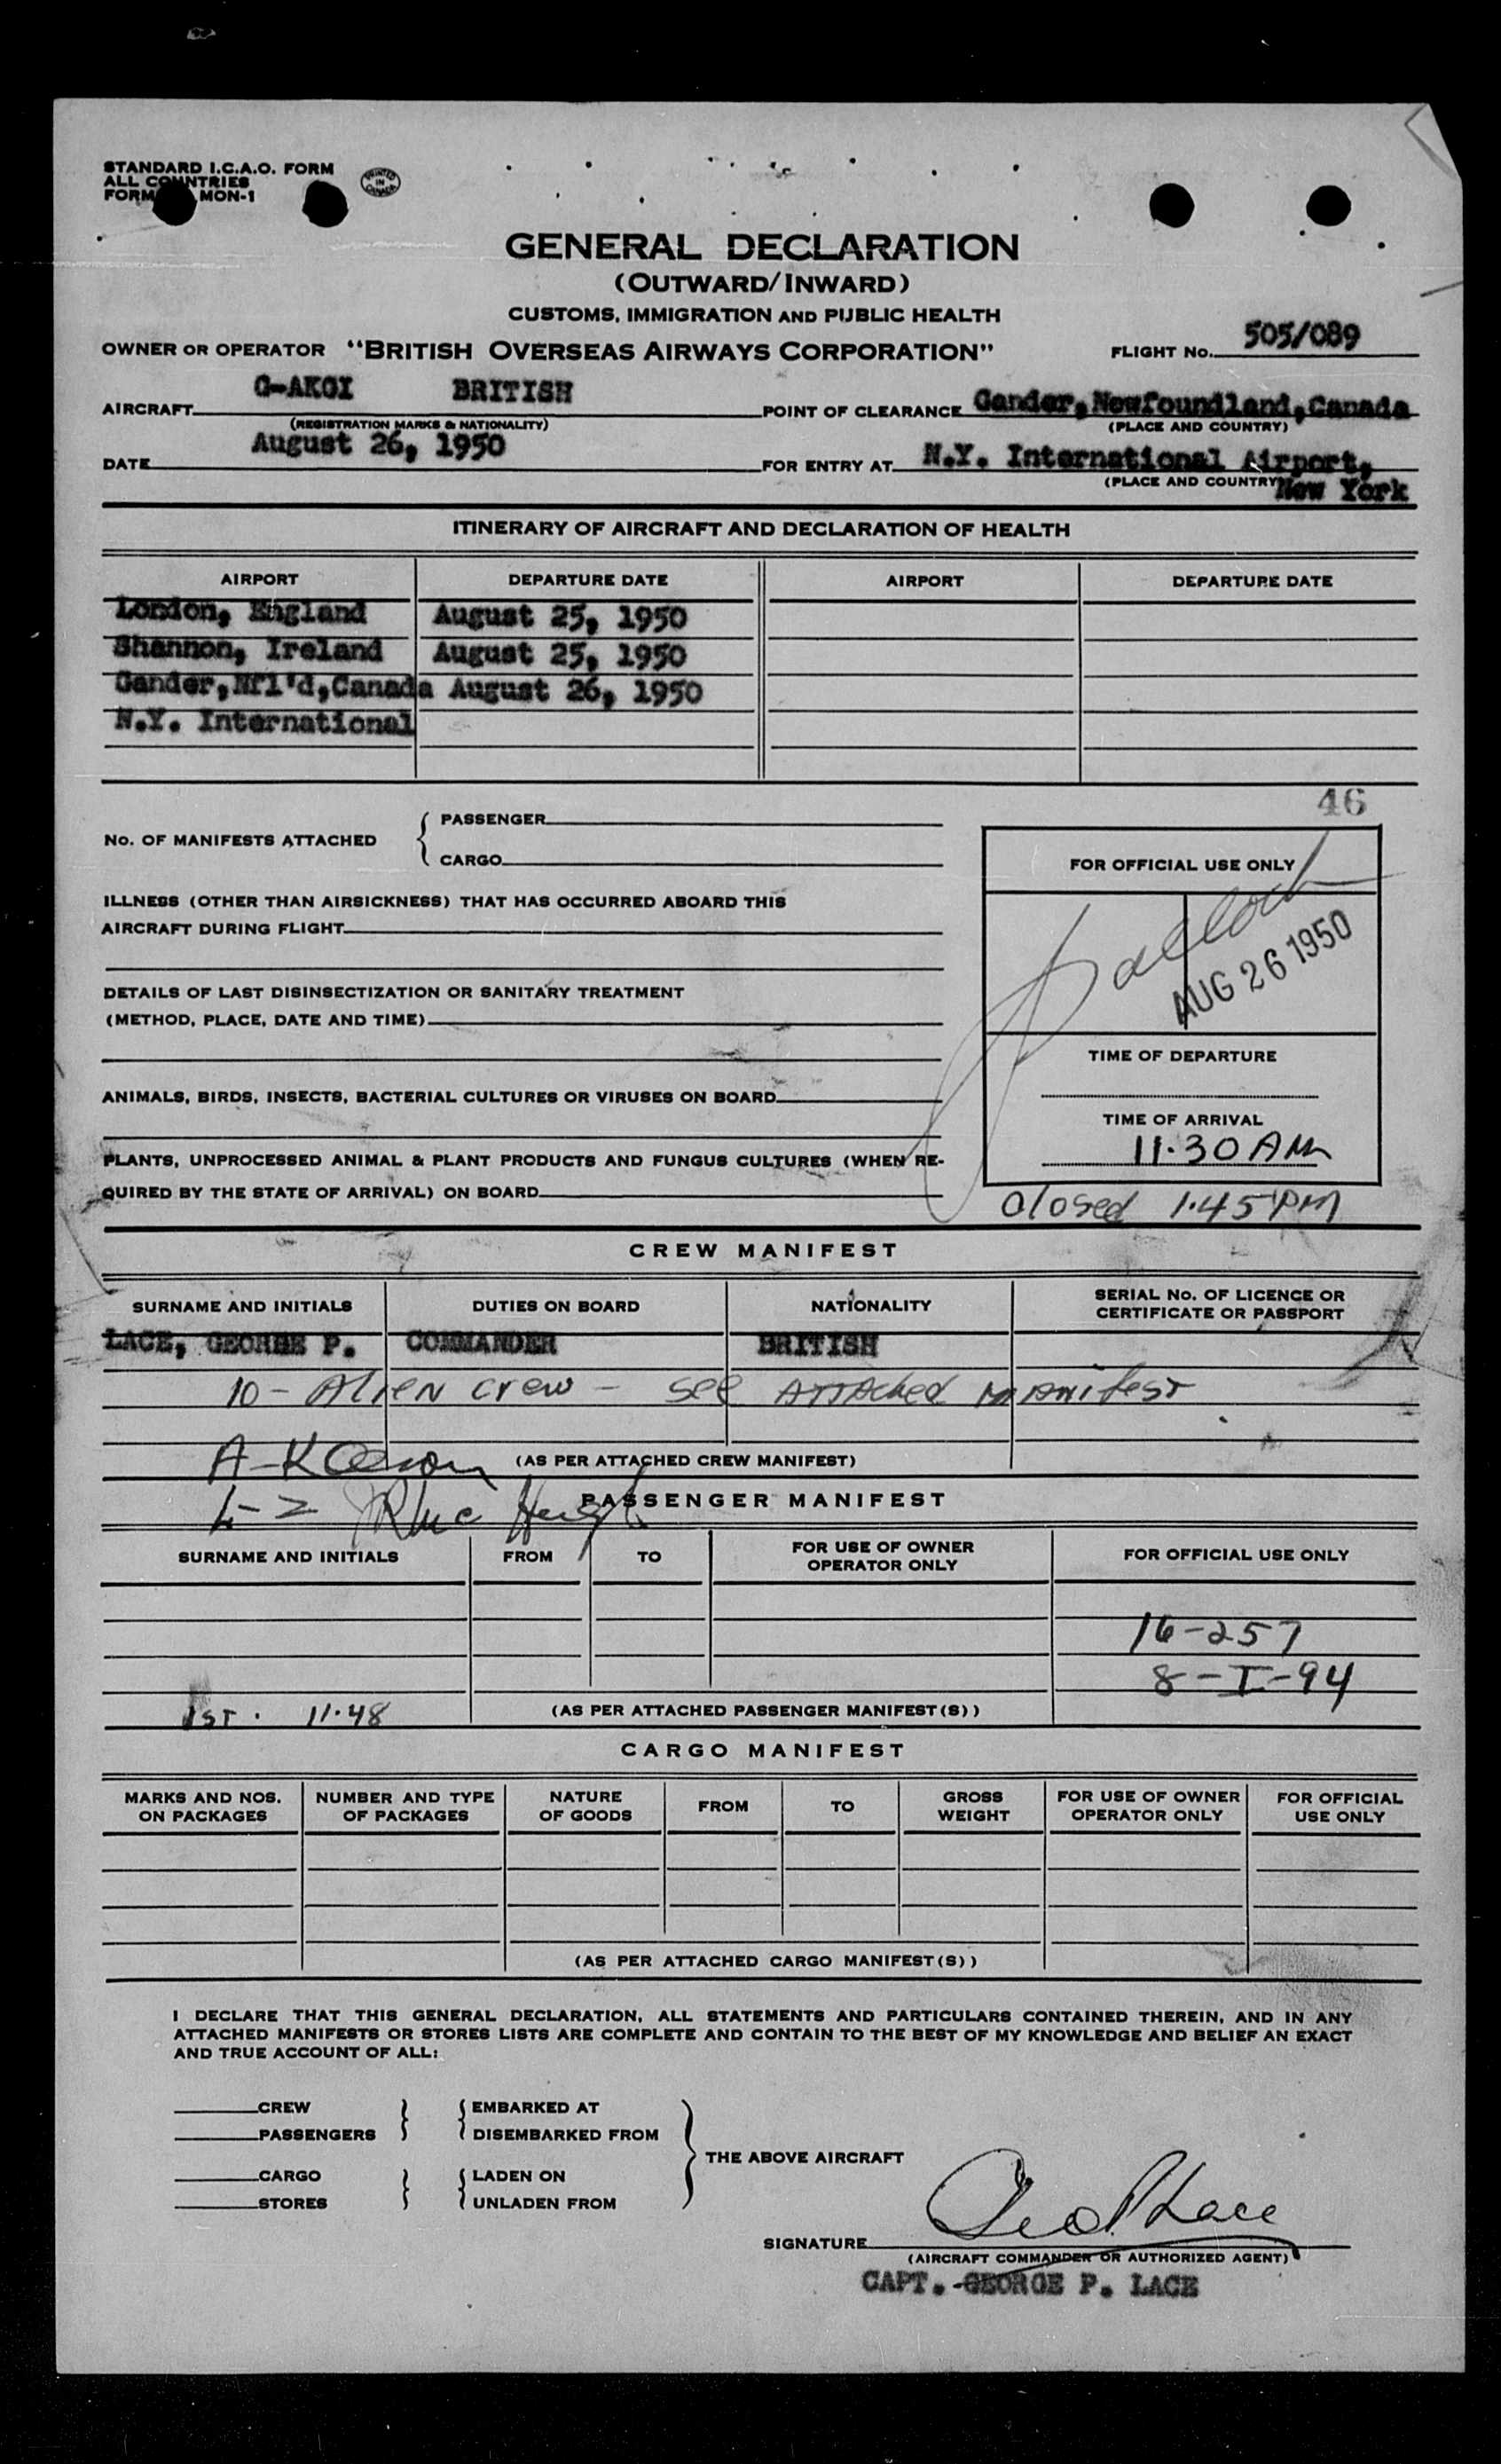 STANDARD I.C.A.O. FORM
ALL COUNTRIES
FORM MON-1
PRINTED IN CANADA
GENERAL DECLARATION
(OUTWARD/INWARD)
CUSTOMS, IMMIGRATION AND PUBLIC HEALTH
OWNER OR OPERATOR "BRITISH OVERSEAS AIRWAYS CORPORATION" FLIGHT No. 505/089
AIRCRAFT G-AKGI BRITISH POINT OF CLEARANCE Gander, Newfoundland, Canada
(REGISTRATION MARKS & NATIONALITY) (PLACE AND COUNTRY)
DATE August 26, 1950 FOR ENTRY AT N.Y. International Airport,
(PLACE AND COUNTRY) New York
ITINERARY OF AIRCRAFT AND DECLARATION OF HEALTH
AIRPORT DEPARTURE DATE AIRPORT DEPARTURE DATE
London, England August 25, 1950
Shannon, Ireland August 25, 1950
Gander, Nfl'd, Canada August 26, 1950
N.Y. International
46
No. OF MANIFESTS ATTACHED { PASSENGER
CARGO
FOR OFFICIAL USE ONLY
ILLNESS (OTHER THAN AIRSICKNESS) THAT HAS OCCURRED ABOARD THIS
AIRCRAFT DURING FLIGHT
AUG 26 1950
DETAILS OF LAST DISINSECTIZATION OR SANITARY TREATMENT
(METHOD, PLACE, DATE AND TIME)
TIME OF DEPARTURE
ANIMALS, BIRDS, INSECTS, BACTERIAL CULTURES OR VIRUSES ON BOARD
TIME OF ARRIVAL
11.30 AM
PLANTS, UNPROCESSED ANIMAL & PLANT PRODUCTS AND FUNGUS CULTURES (WHEN RE-
QUIRED BY THE STATE OF ARRIVAL) ON BOARD
Closed 1.45 PM
CREW MANIFEST
SURNAME AND INITIALS DUTIES ON BOARD NATIONALITY SERIAL No. OF LICENCE OR
CERTIFICATE OR PASSPORT
LACE, GEORGE P. COMMANDER BRITISH
10 - Alien crew - see Attached Manifest
(AS PER ATTACHED CREW MANIFEST)
PASSENGER MANIFEST
SURNAME AND INITIALS FROM TO FOR USE OF OWNER
OPERATOR ONLY FOR OFFICIAL USE ONLY
16-257
8-I-94
1st. 11.48 (AS PER ATTACHED PASSENGER MANIFEST(S))
CARGO MANIFEST
MARKS AND NOS.
ON PACKAGES NUMBER AND TYPE
OF PACKAGES NATURE
OF GOODS FROM TO GROSS
WEIGHT FOR USE OF OWNER
OPERATOR ONLY FOR OFFICIAL
USE ONLY
(AS PER ATTACHED CARGO MANIFEST(S))
I DECLARE THAT THIS GENERAL DECLARATION, ALL STATEMENTS AND PARTICULARS CONTAINED THEREIN, AND IN ANY
ATTACHED MANIFESTS OR STORES LISTS ARE COMPLETE AND CONTAIN TO THE BEST OF MY KNOWLEDGE AND BELIEF AN EXACT
AND TRUE ACCOUNT OF ALL:
CREW } { EMBARKED AT
PASSENGERS DISEMBARKED FROM
} THE ABOVE AIRCRAFT
CARGO } { LADEN ON
STORES UNLADEN FROM
SIGNATURE Geo P. Lace
(AIRCRAFT COMMANDER OR AUTHORIZED AGENT)
CAPT. GEORGE P. LACE